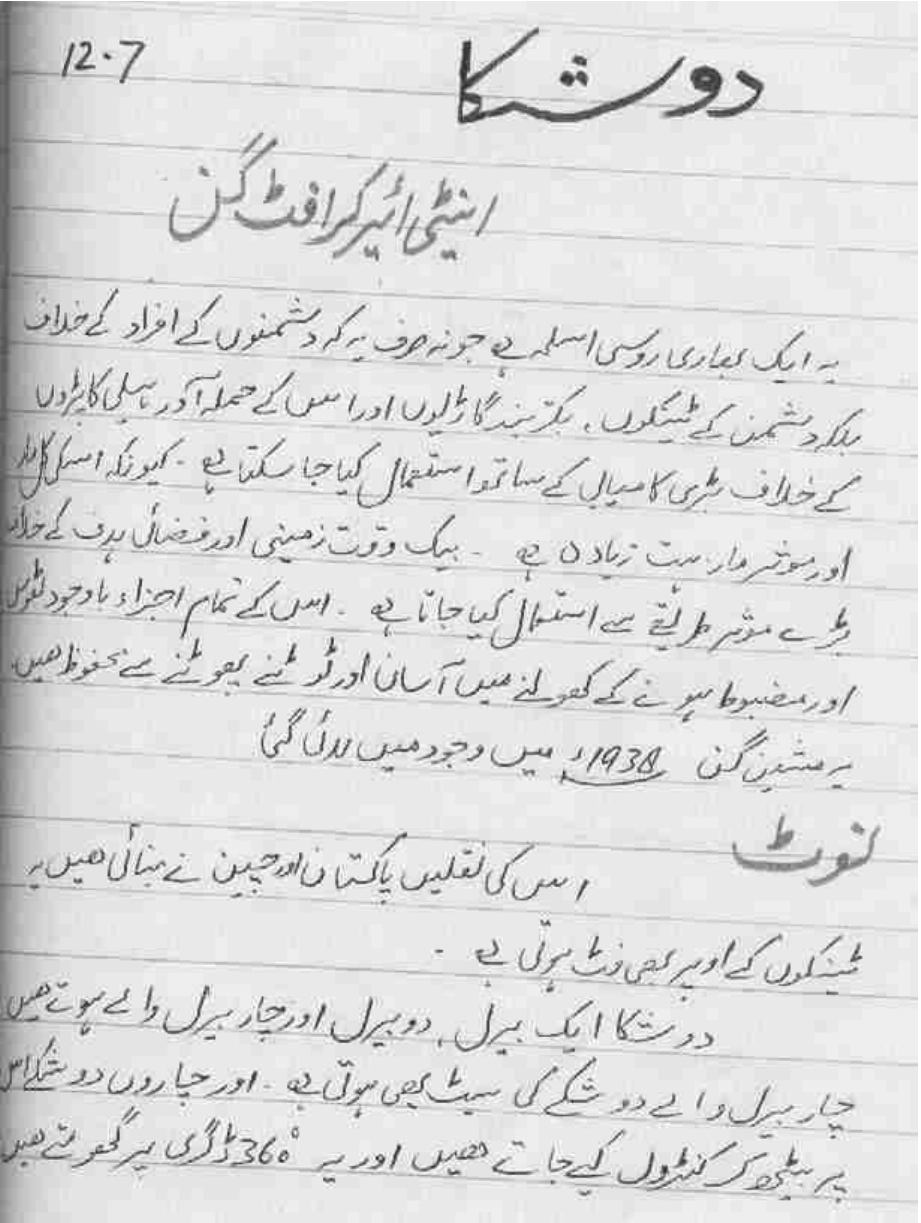 12.7
دوشکا
اینٹی ائیر کرافٹ گن
یہ ایک بھاری روسی اسلحہ ہے جو نہ صرف یہ کہ دشمنوں کے افراد کے خلاف
بلکہ دشمن کے ٹینکوں، بکتر بند گاڑیوں اور اس کے حملہ آور ہیلی کاپٹروں
کے خلاف بڑی کامیابی کے ساتھ استعمال کیا جا سکتا ہے ۔ کیونکہ اسکی
اور موثر مار بہت زیادہ ہے ۔ بیک وقت زمینی اور فضائی ہدف کے خلاف
بڑے موثر طریقے سے استعمال کیا جاتا ہے ۔ اس کے تمام اجزاء باوجود ٹھوس
اور مضبوط ہونے کے کھولنے میں آسان اور ٹوٹنے پھوٹنے سے محفوظ ھیں
یہ مشین گن 1938ء میں وجود میں لائی گئی
نوٹ
اس کی نقلیں پاکستان اور چین نے بنائی ھیں یہ
ٹینکوں کے اوپر بھی فٹ ہوتی ہے ۔
دوشکا ایک بیرل، دو بیرل اور چار بیرل والے ہوتے ھیں
چار بیرل والے دوشکے کی سیٹ بھی ہوتی ہے ۔ اور چاروں دوشکے اس
پر بیٹھ کر کنٹرول کیے جاتے ھیں اور یہ 360° ڈگری پر گھومتے ھیں